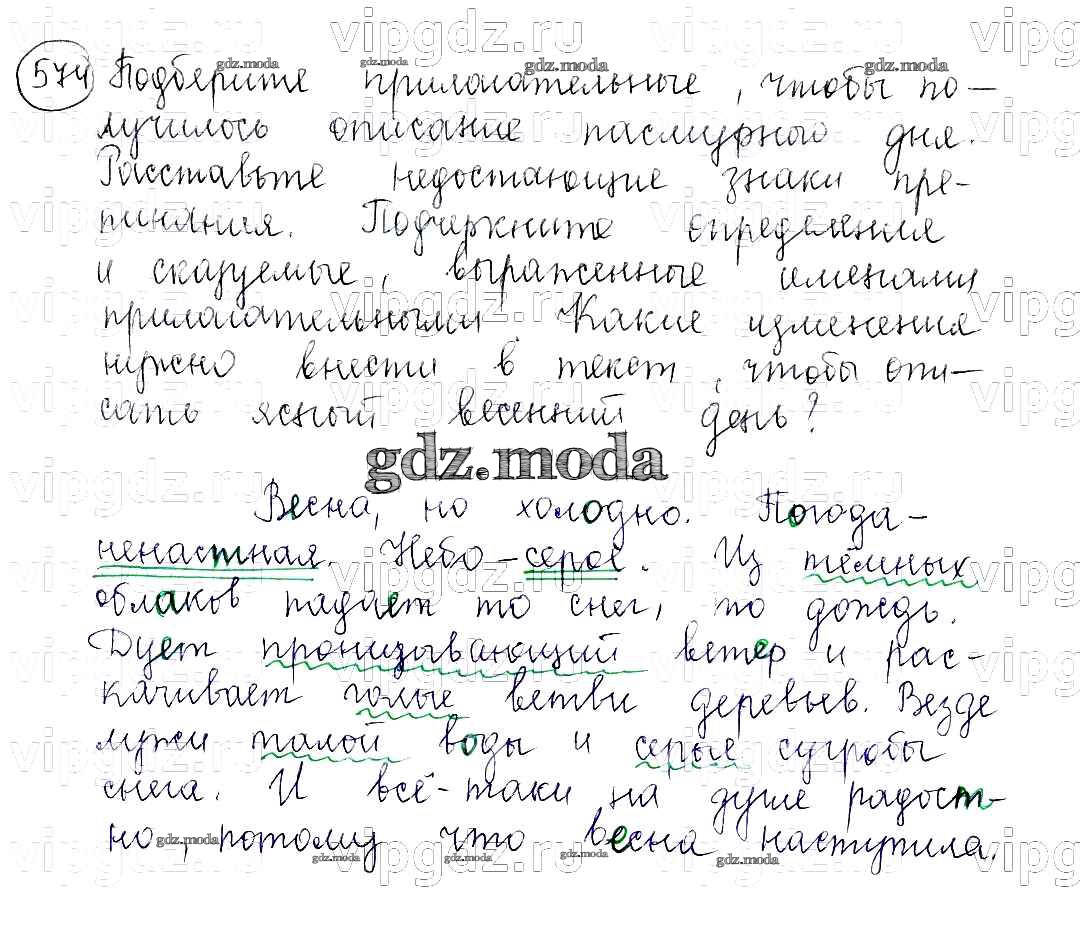 574 Подберите прилагательные, чтобы по-
лучилось описание пасмурного дня.
Расставьте недостающие знаки пре-
пинания. Подчеркните определения
и сказуемые, выраженные именами
прилагательными. Какие изменения
нужно внести в текст, чтобы опи-
сать ясный весенний день?
gdz.moda
Весна, но холодно. Погода -
ненастная. Небо - серое. Из тёмных
облаков падает то снег, то дождь.
Дует пронизывающий ветер и рас-
качивает голые ветви деревьев. Везде
лужи талой воды и серые сугробы
снега. И всё-таки на душе радост-
но, потому что весна наступила.